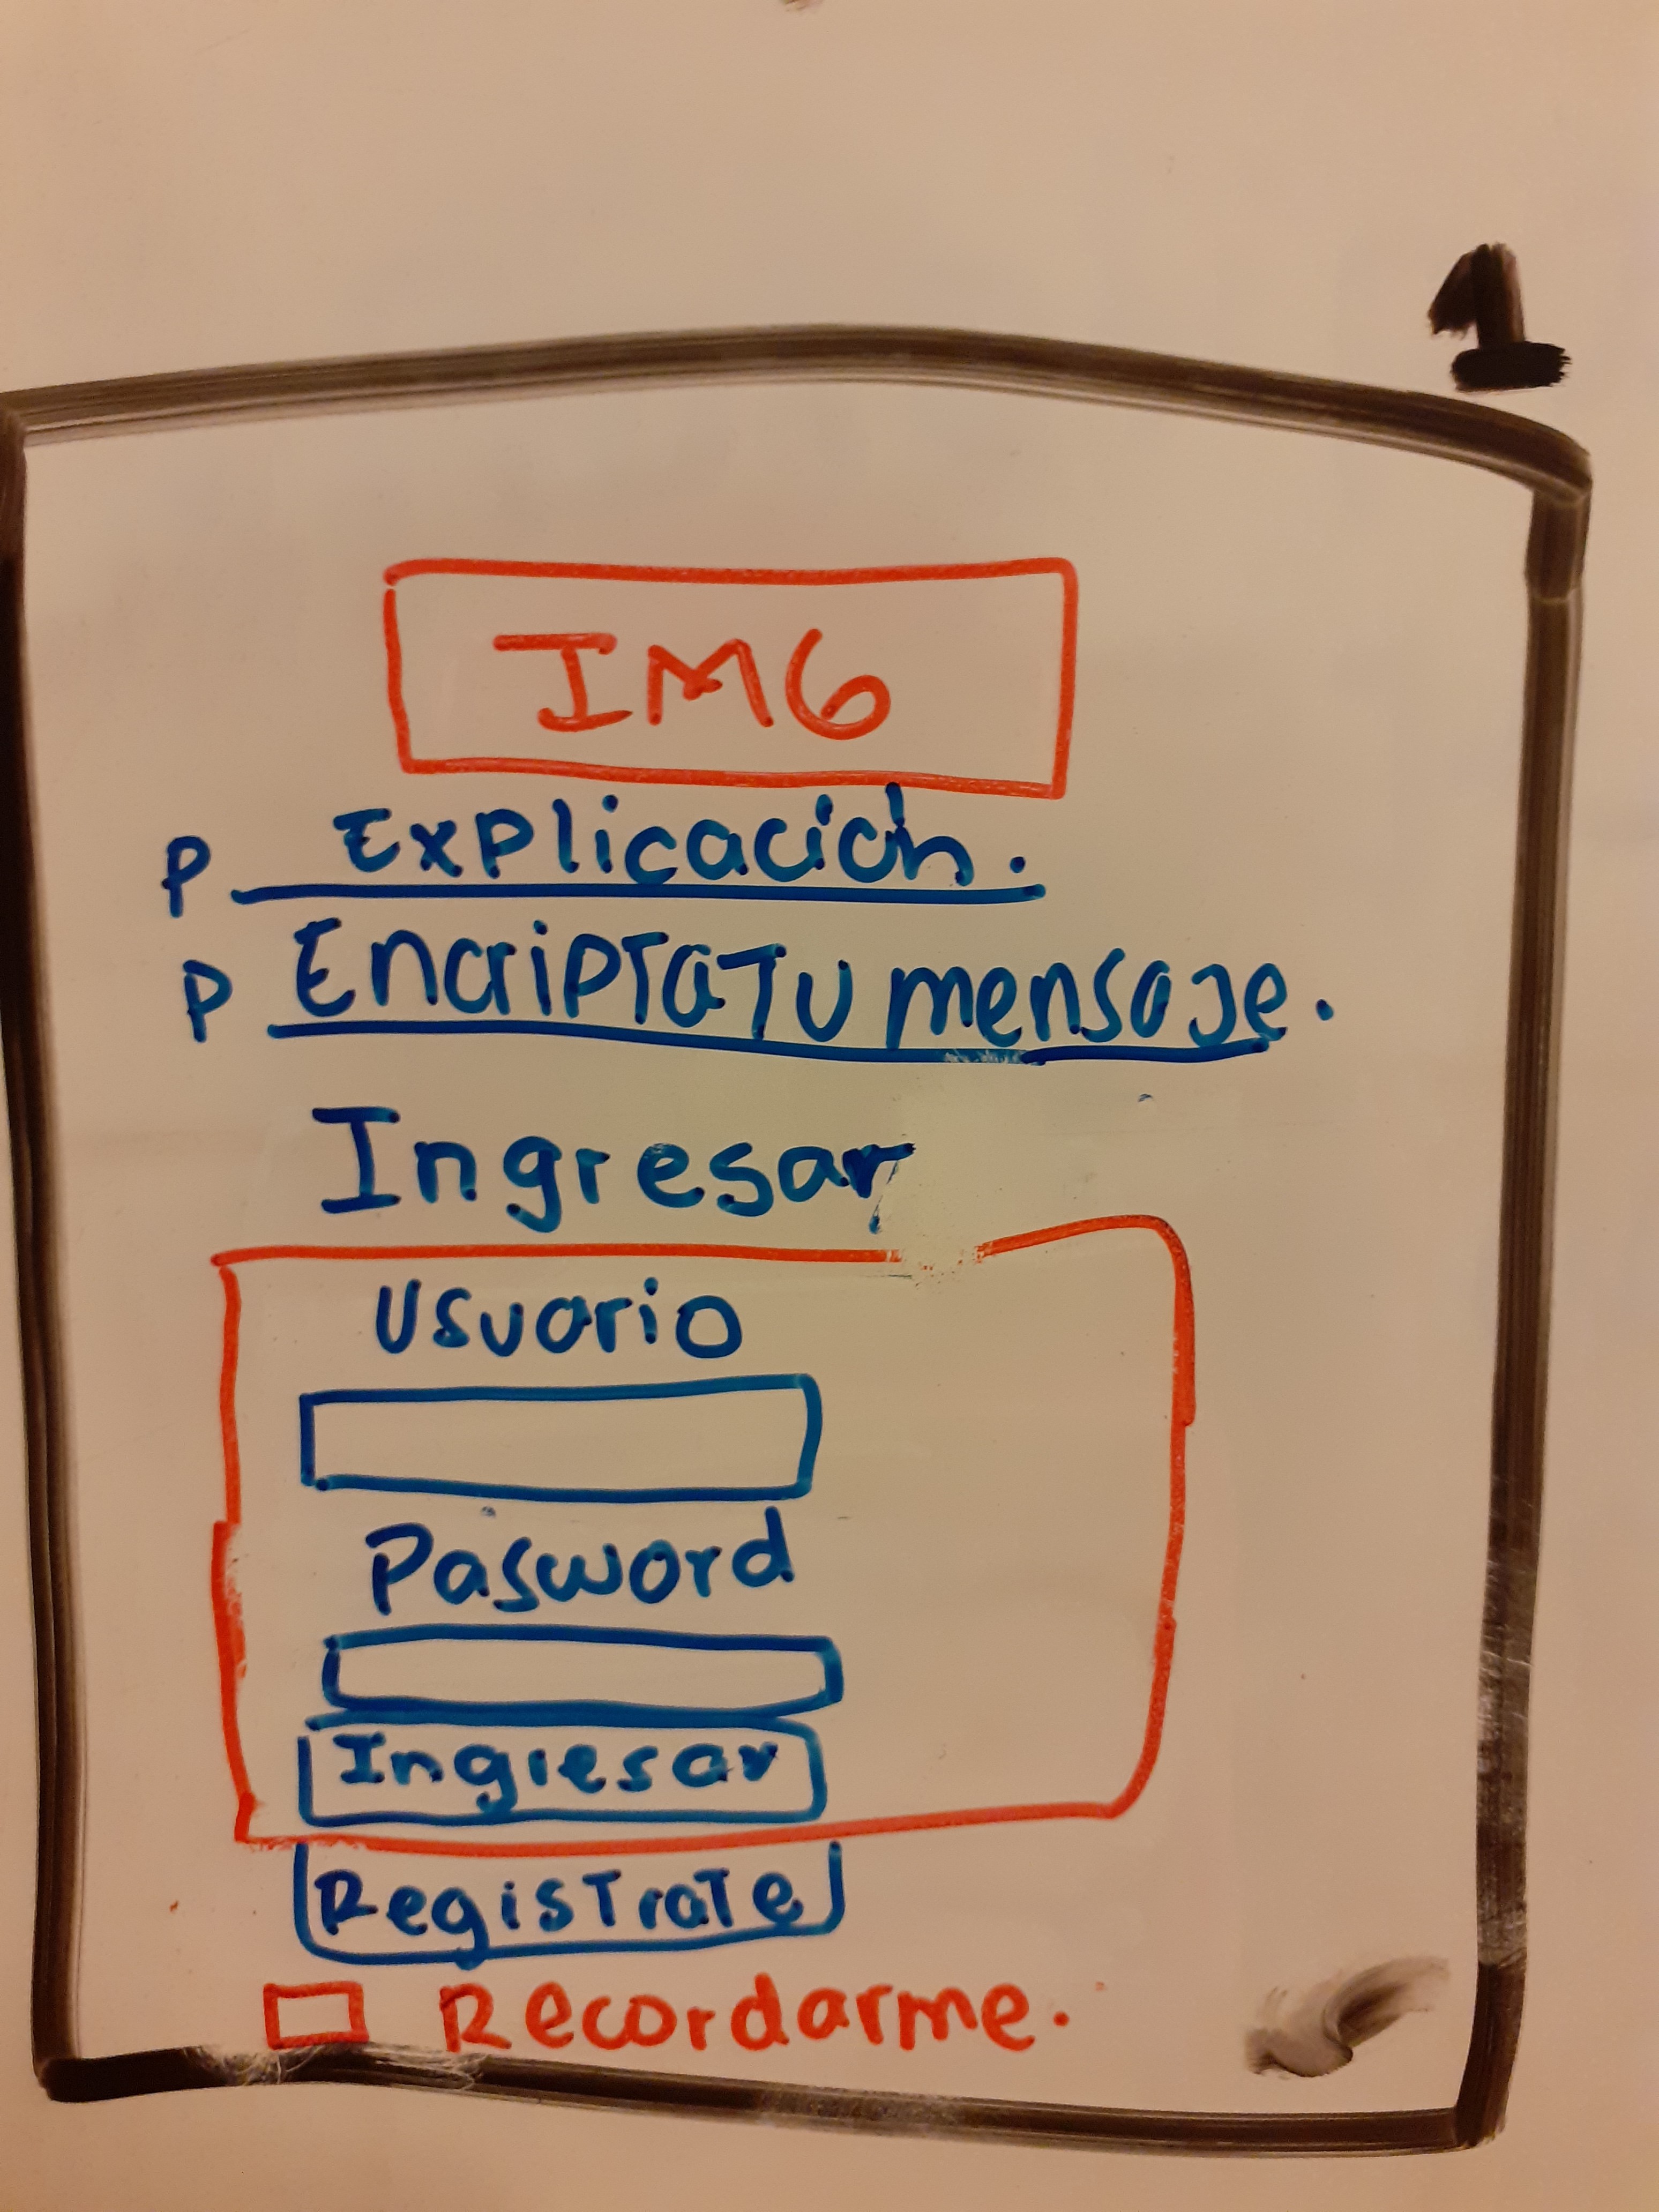 1
IMG
P Explicación.
P Encripta Tu mensaje.
Ingresar
Usuario
Pasword
Ingresar
Registrate
Recordarme.